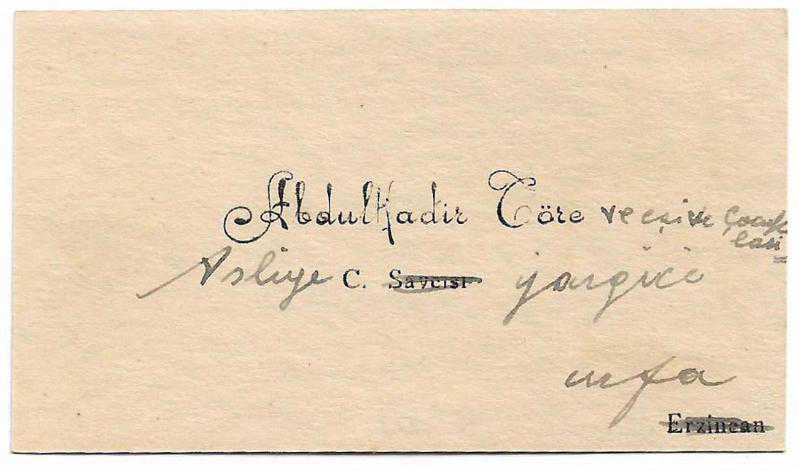 Abdulkadir Töre ve eşi ve çocuk
ları
Asliye C. Savcısı yargıcı
urfa
Erzincan